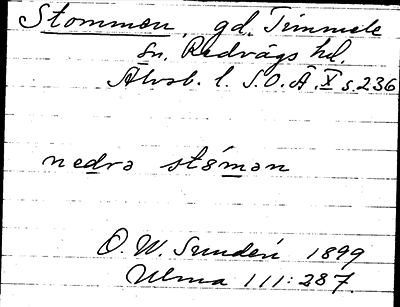 Stommen, gd. Timmele
sn. Redvägs hd.
Älvsb. l. S.O.Ä. X s.236
nedra stómən
O. W. Sundén 1899
Ulma 111:287.